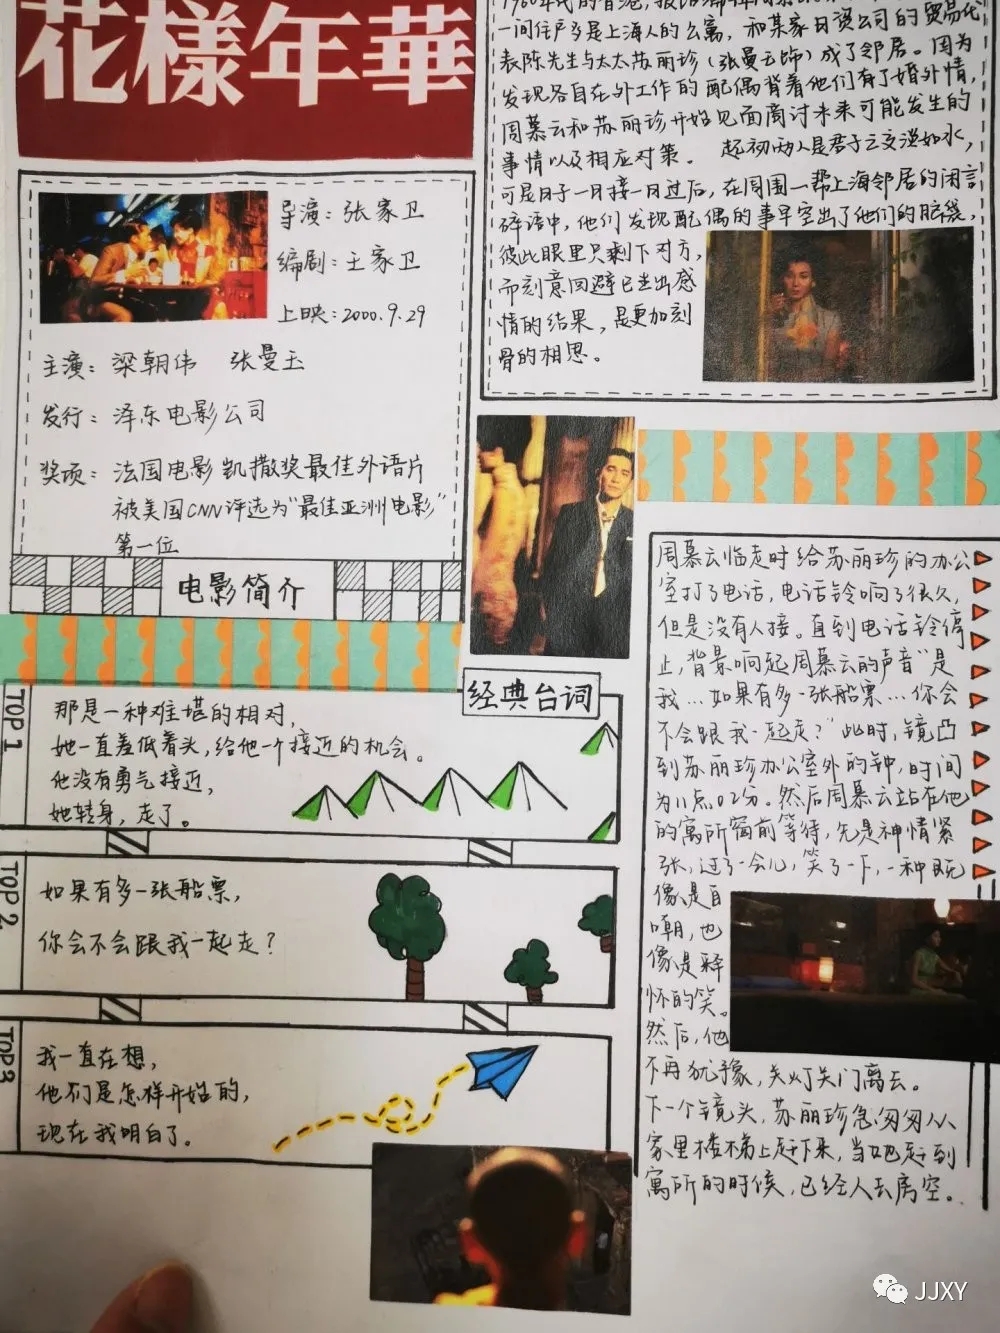 花樣年華
导演：张家卫
编剧：王家卫
上映：2000.9.29
主演：梁朝伟 张曼玉
发行：泽东电影公司
奖项：法国电影凯撒奖最佳外语片
被美国CNN评选为“最佳亚洲电影”
第一位
电影简介
一间住户多是上海人的公寓，和某家日资公司的贸易代
表陈先生与太太苏丽珍（张曼玉饰）成了邻居。因为
发现各自在外工作的配偶背着他们有了婚外情，
周慕云和苏丽珍开始见面商讨未来可能发生的
事情以及相应对策。 起初两人是君子之交淡如水，
可是日子一日接一日过后，在周围一帮上海邻居的闲言
碎语中，他们发现配偶的事早空出了他们的脑袋，
彼此眼里只剩下对方，
而刻意回避已生出感
情的结果，是更加刻
骨的相思。
经典台词
TOP 1
那是一种难堪的相对，
她一直羞低着头，给他一个接近的机会。
他没有勇气接近，
她转身，走了。
TOP 2
如果有多一张船票，
你会不会跟我一起走？
TOP3
我一直在想，
他们是怎样开始的，
现在我明白了。
周慕云临走时给苏丽珍的办公
室打了电话，电话铃响了很久，
但是没有人接。直到电话铃停
止，背景响起周慕云的声音“是
我…如果有多一张船票…你会
不会跟我一起走？”此时，镜凸
到苏丽珍办公室外的钟，时间
为11点02分。然后周慕云站在他
的寓所窗前等待，先是神情紧
张，过了一会儿，笑了一下，一种既
像是自
嘲，也
像是释
怀的笑。
然后，他
不再犹豫，关灯关门离去。
下一个镜头，苏丽珍急匆匆从
家里楼梯上赶下来，当她赶到
寓所的时候，已经人去房空。
JJXY